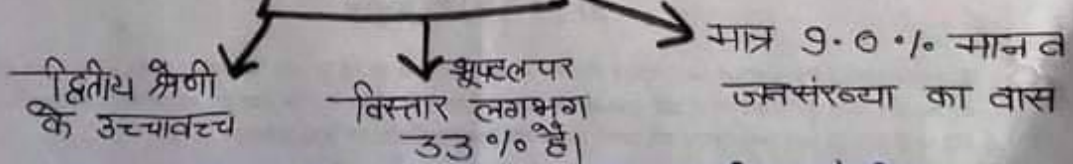 द्वितीय श्रेणी
के उच्चावच्च
भूपटल पर
विस्तार लगभग
33 % है।
मात्र 9.0 % मानव
जनसंख्या का वास